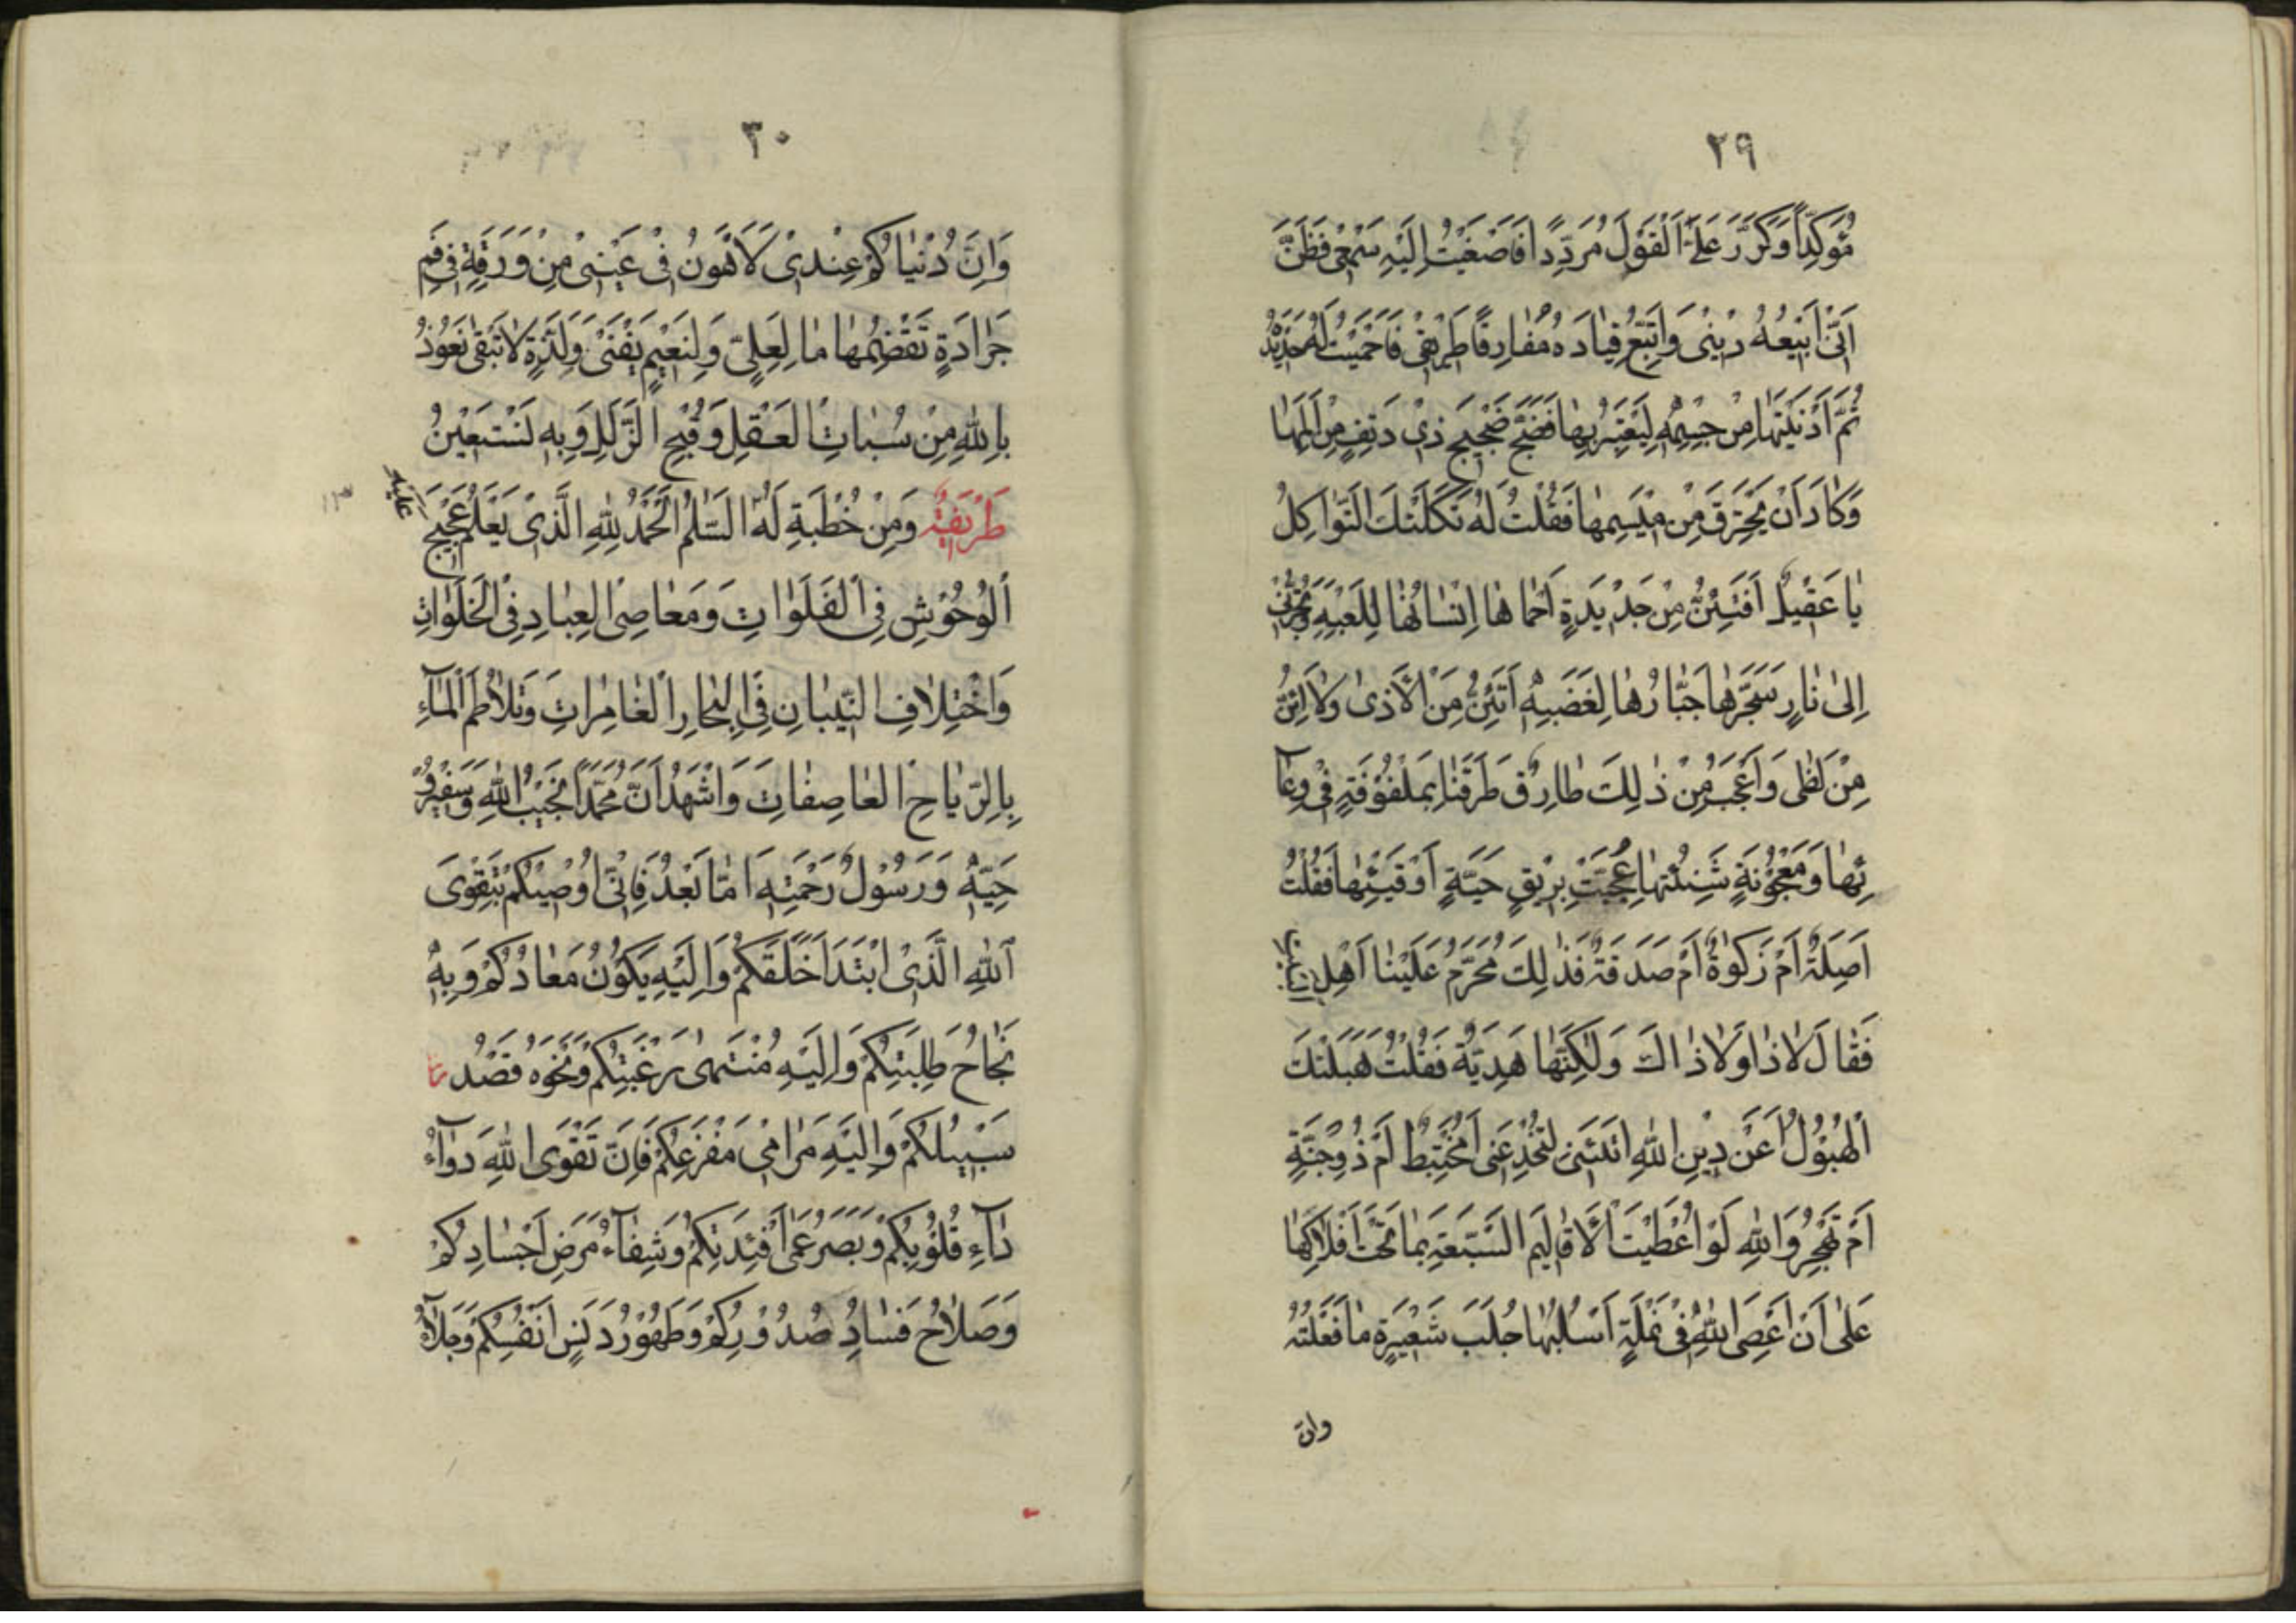 ٢٩
مُؤَكِّدًا وَكَرَّرَ عَلَىَّ الْقَوْلَ مُرَدِّدًا فَاَصْغَيْتُ اِلَيْهِ سَمْعِى فَظَنَّ
اَنّى اَبيعُهُ دينى وَاَتَّبِعُ قِيادَهُ مُفارِقًا طَريقى فَاَحْمَيْتُ لَهُ حَديدَةً
ثُمَّ اَدْنَيْتُها مِنْ جِسْمِهِ لِيَعْتَبِرَ بِها فَضَجَّ ضَجيجَ ذى دَنَفٍ مِنْ اَلَمِها
وَكادَ اَنْ يَحْتَرِقَ مِنْ ميسَمِها فَقُلْتُ لَهُ ثَكَلَتْكَ الثَّواكِلُ
يا عَقيلُ اَتَئِنُّ مِنْ حَديدَةٍ اَحْماها اِنْسانُها لِلَعِبِهِ وَتَجُرُّنى
اِلى نارٍ سَجَّرَها جَبّارُها لِغَضَبِهِ اَتَئِنُّ مِنَ الْاَذى وَلا اَئِنُّ
مِنْ لَظى وَاَعْجَبُ مِنْ ذلِكَ طارِقٌ طَرَقَنا بِمَلْفُوفَةٍ فى وِعآ
ئِها وَمَعْجُونَةٍ شَنِئْتُها عُجِنَتْ بِريقِ حَيَّةٍ اَوْ قَيْئِها فَقُلْتُ
اَصِلَةٌ اَمْ زَكوةٌ اَمْ صَدَقَةٌ فَذلِكَ مُحَرَّمٌ عَلَيْنا اَهْلَ
فَقالَ لا ذا وَلا ذاكَ وَلكِنَّها هَدِيَّةٌ فَقُلْتُ هَبَلَتْكَ
الْهَبُولُ اَعَنْ دينِ اللهِ اَتَيْتَنى لِتَخْدَعَنى اَمُخْتَبِطٌ اَمْ ذُوجِنَّةٍ
اَمْ تَهْجُرُ وَاللهِ لَوْ اُعْطيتُ الْاَقاليمَ السَّبْعَةَ بِما تَحْتَ اَفْلاكِها
عَلى اَنْ اَعْصِىَ اللهَ فى نَمْلَةٍ اَسْلُبُها جُلَبَ شَعيرَةٍ ما فَعَلْتُهُ
وانّ
٣٠
وَاِنَّ دُنْياكُمْ عِنْدى لَاَهْوَنُ فى عَيْنى مِنْ وَرَقَةٍ فى فَمِ
جَرادَةٍ تَقْضِمُها ما لِعَلِىٍّ وَلِنَعيمٍ يَفْنى وَلَذَّةٍ لا تَبْقى نَعُوذُ
بِاللهِ مِنْ سُباتِ الْعَقْلِ وَقُبْحِ الزَّلَلِ وَبِهِ نَسْتَعينُ
طَريفَة وَمِنْ خُطْبَةٍ لَهُ السَّلمُ اَلْحَمْدُ لِلّهِ الَّذى يَعْلَمُ عَجيجَ
عليه
الْوُحُوشِ فِى الْفَلَواتِ وَمَعاصِىَ الْعِبادِ فِى الْخَلَواتِ
وَاخْتِلافَ النّينانِ فِى الْبِحارِ الْغامِراتِ وَتَلاطُمَ الْمآءِ
بِالرِّياحِ الْعاصِفاتِ وَاَشْهَدُ اَنَّ مُحَمَّدًا نَجيبُ اللهِ وَسَفيرُ
وَحْيِهِ وَرَسُولُ رَحْمَتِهِ اَمّا بَعْدُ فَاِنّى اُوصيكُمْ بِتَقْوَى
اللهِ الَّذى ابْتَدَاَ خَلْقَكُمْ وَاِلَيْهِ يَكُونُ مَعادُكُمْ وَبِهِ
نَجاحُ طَلِبَتِكُمْ وَاِلَيْهِ مُنْتَهى رَغْبَتِكُمْ وَنَحْوَهُ قَصْدُ
سَبيلِكُمْ وَاِلَيْهِ مَرامى مَفْزَعِكُمْ فَاِنَّ تَقْوَى اللهِ دَوآءُ
دآءِ قُلُوبِكُمْ وَبَصَرُ عَمى اَفْئِدَتِكُمْ وَشِفآءُ مَرَضِ اَجْسادِكُمْ
وَصَلاحُ فَسادِ صُدُورِكُمْ وَطَهُورُ دَنَسِ اَنْفُسِكُمْ وَجَلآءُ